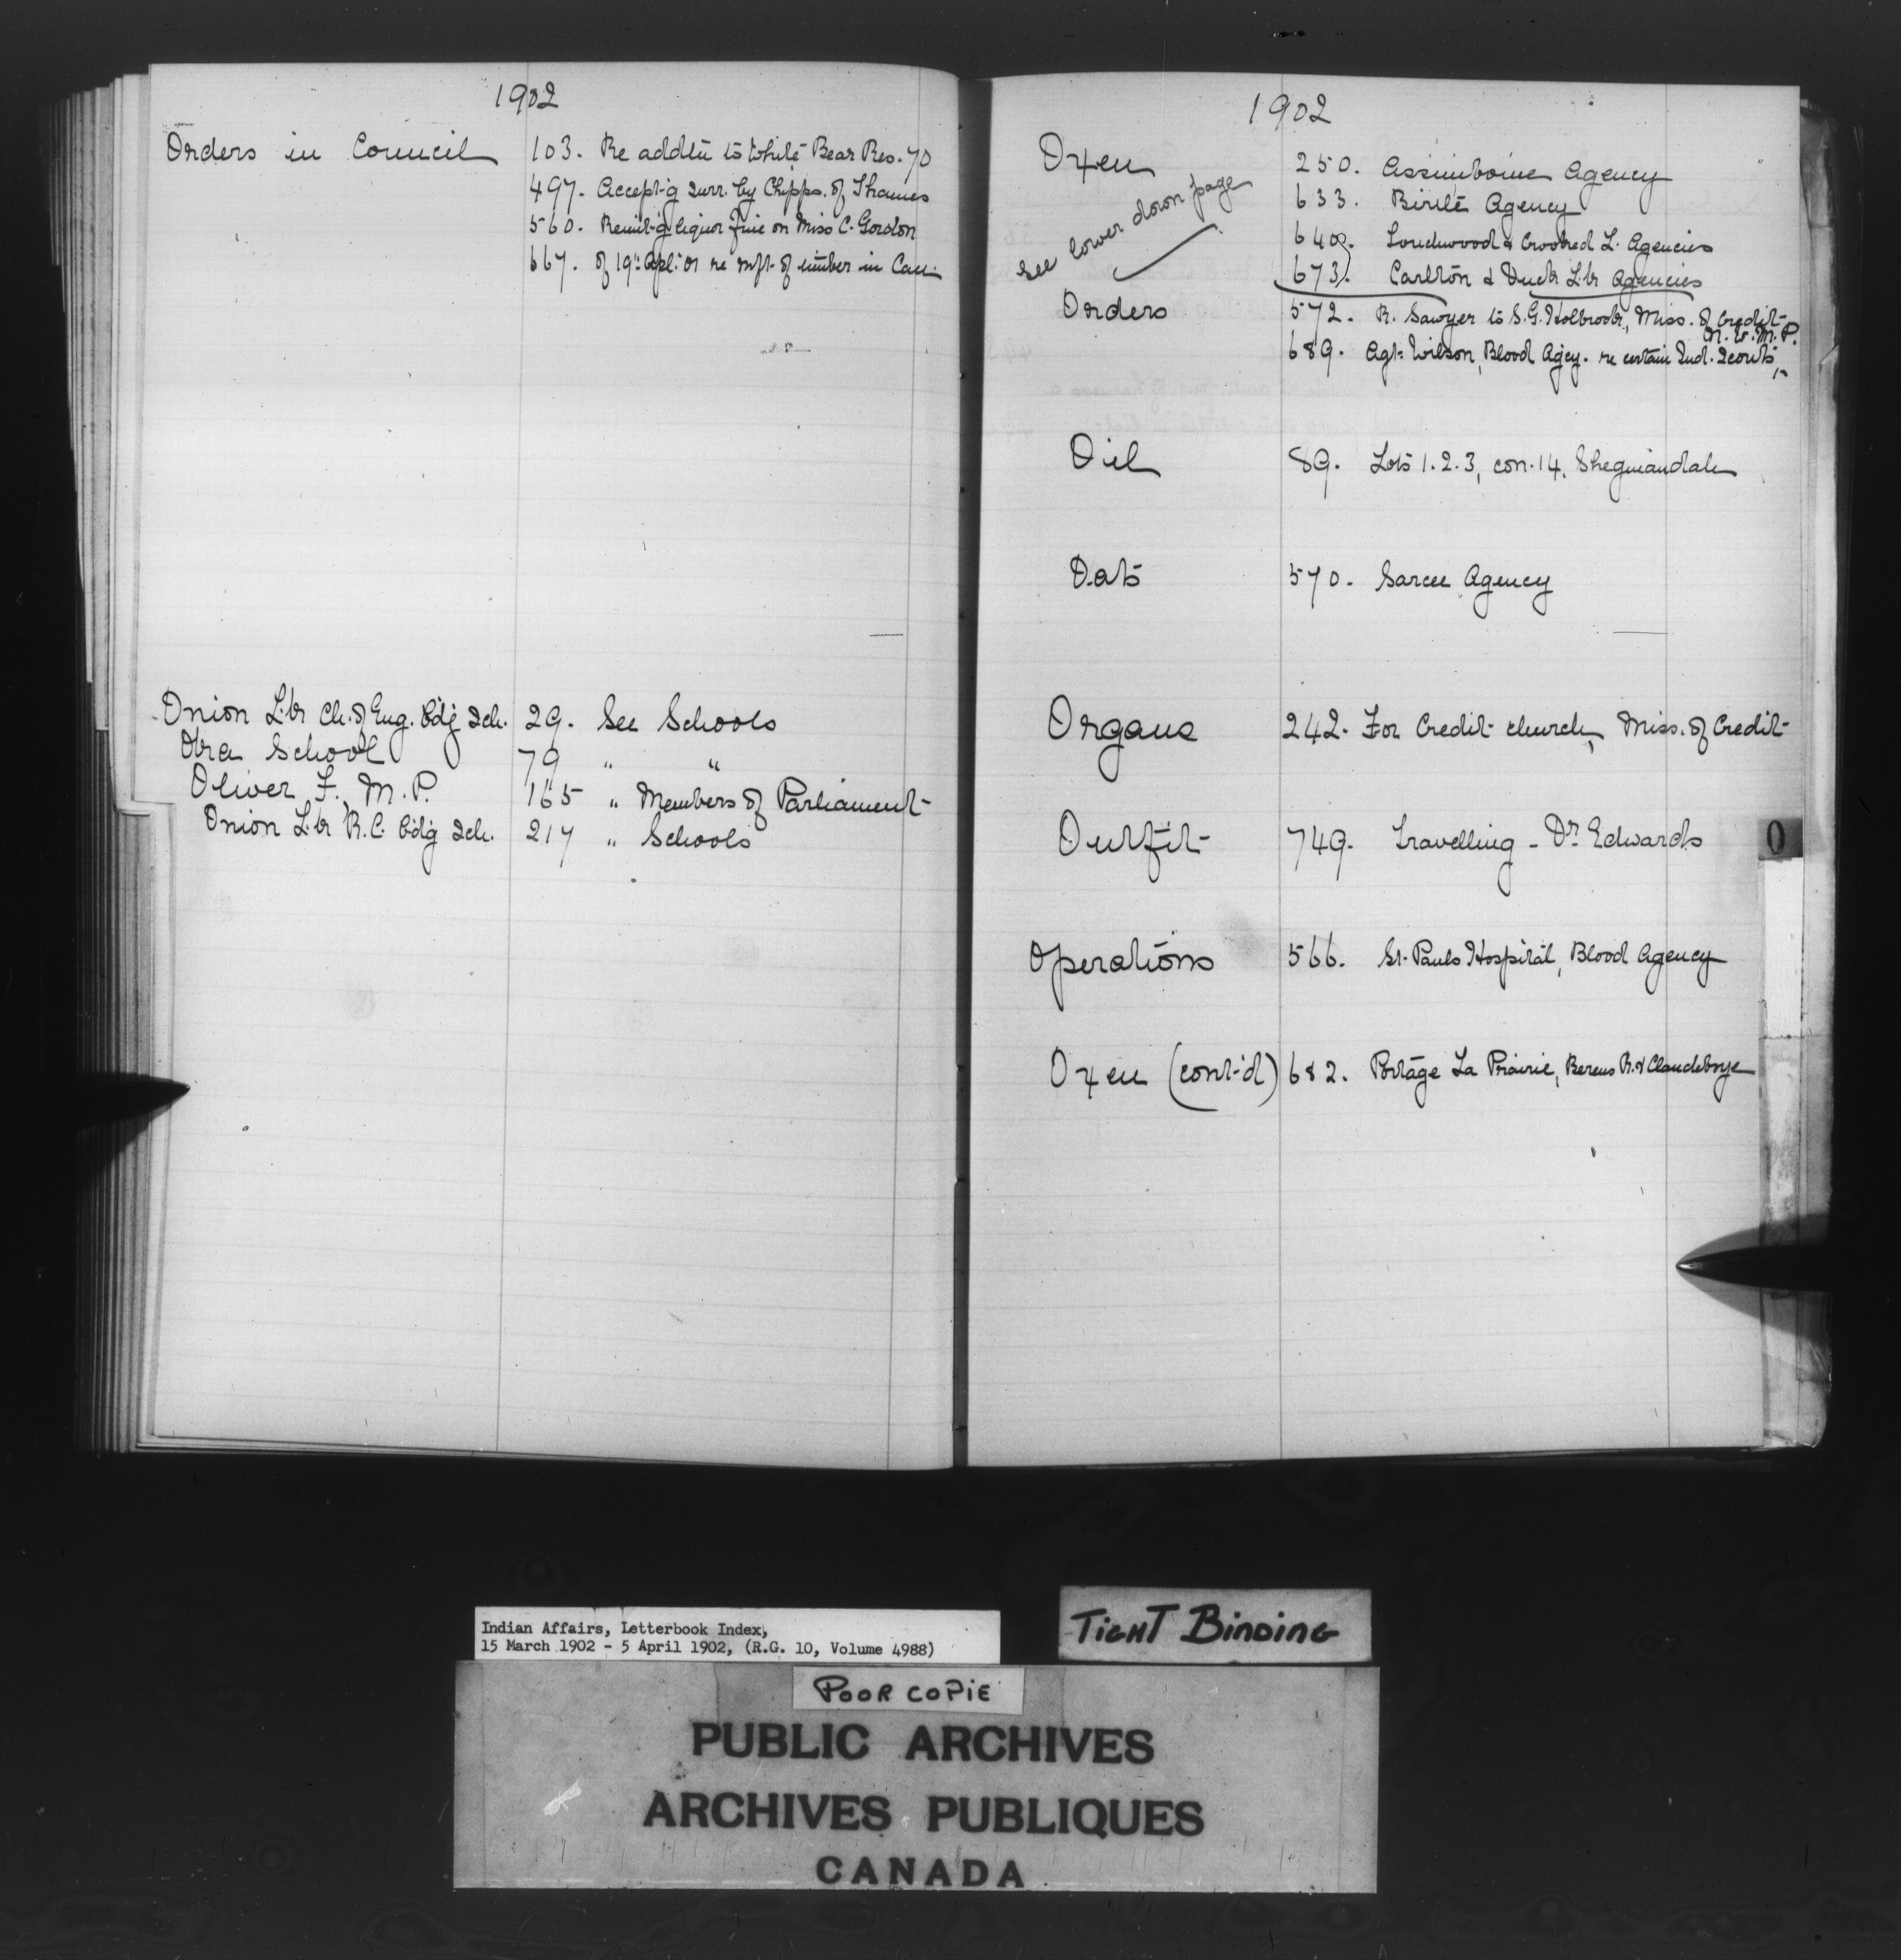 1902
Orders in Council 103. Re addtn to White Bear Res. 70
497. Accept-g surr. by Chipps. of Thames
560. Remit-g liquor fine on Miss C. Gordon
667. of 19th Apl. 01 re mft. of timber in Can.
Onion Lk Ch. of Eng. Bdg Sch. 29. See Schools
School 79 " "
Oliver, F., M.P. 165 " Members of Parliament
Onion Lk R.C. Bdg Sch. 217 " Schools
1902
Oxen 250. Assiniboine Agency
see lower down page
633. Birtle Agency
640. Touchwood & Crooked L. Agencies
673. Carlton & Duck Lk Agencies
Orders 572. R. Sawyer to S.G. Holbrook, Miss. of Credit
689. Agt. Wilson, Blood Agcy. re certain Ind. Scouts, N.W.M.P.
Oil 89. Lots 1.2.3, con. 14, Sheguiandah
Oats 570. Sarcee Agency
Organs 242. For Credit church, Miss. of Credit
Outfit 749. Travelling - Dr. Edwards
O
Operations 566. St. Pauls Hospital, Blood Agency
Oxen (cont'd) 682. Portage La Prairie, Berens R. & Clandeboye
Indian Affairs, Letterbook Index,
15 March 1902 - 5 April 1902, (R.G. 10, Volume 4988)
TIGHT BINDING
POOR COPIE
PUBLIC ARCHIVES
ARCHIVES PUBLIQUES
CANADA